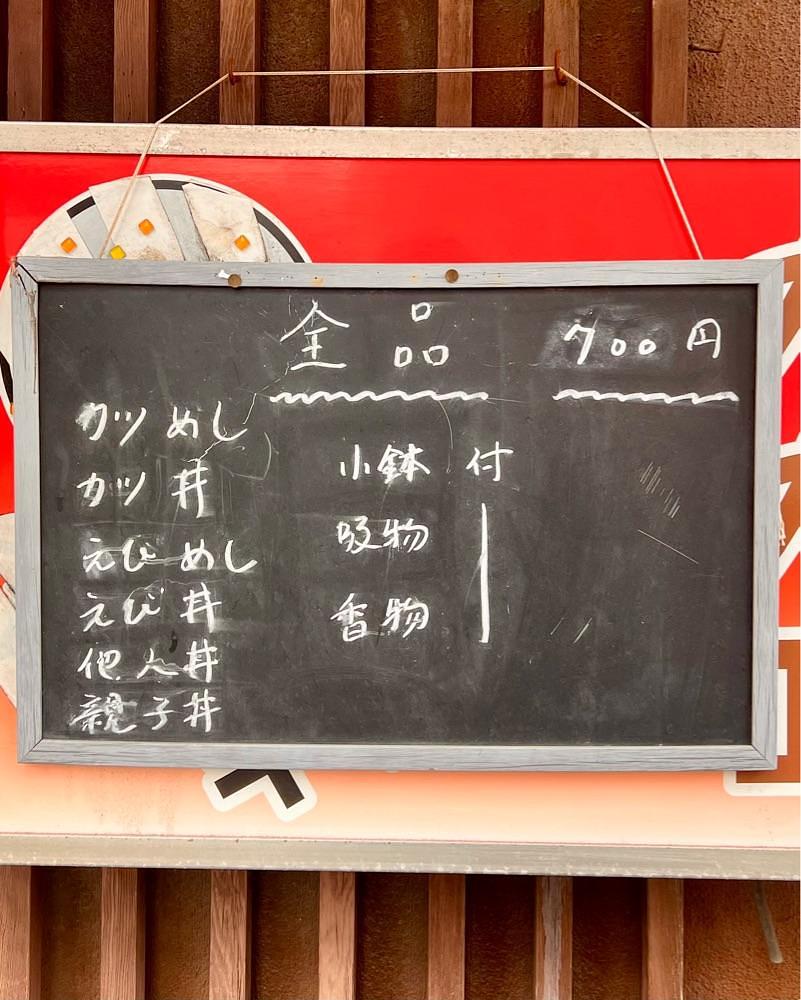 全品 700円
カツめし
カツ丼
えびめし
えび丼
他人丼
親子丼
小鉢 付
吸物
香物